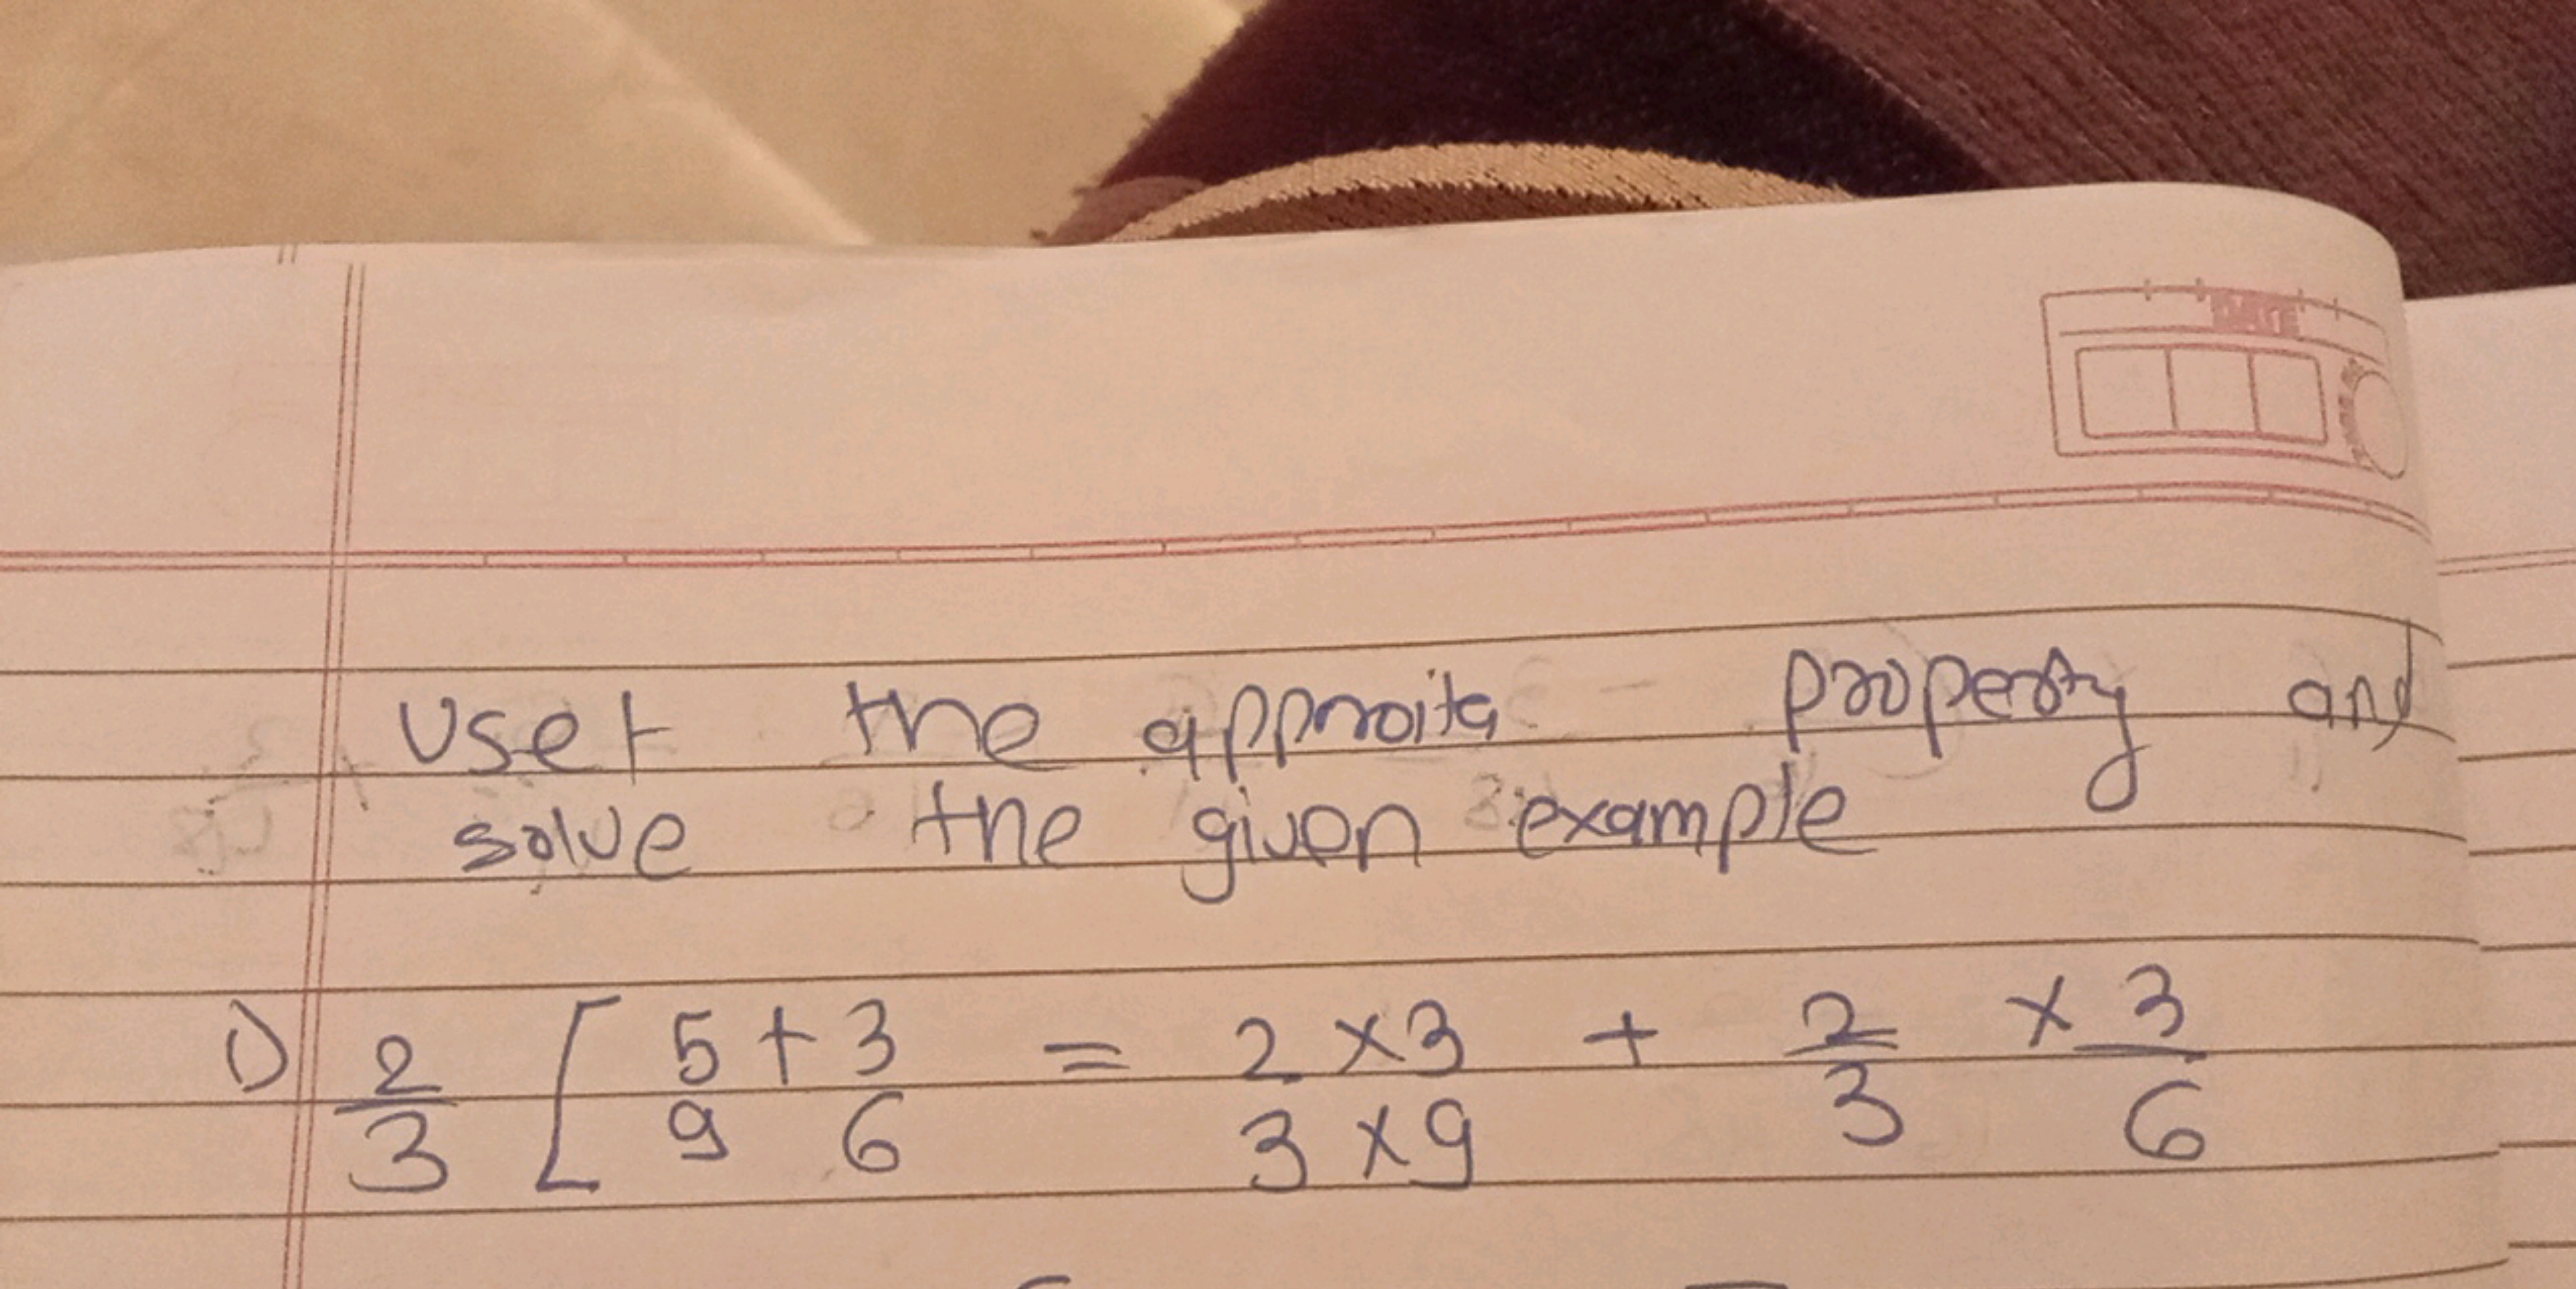 Uset the approita property and
solve the given example
DATE
1) 2/3 [ 5/9 + 3/6 = 2 × 3 / 3 × 9 + 2/3 × 3/6